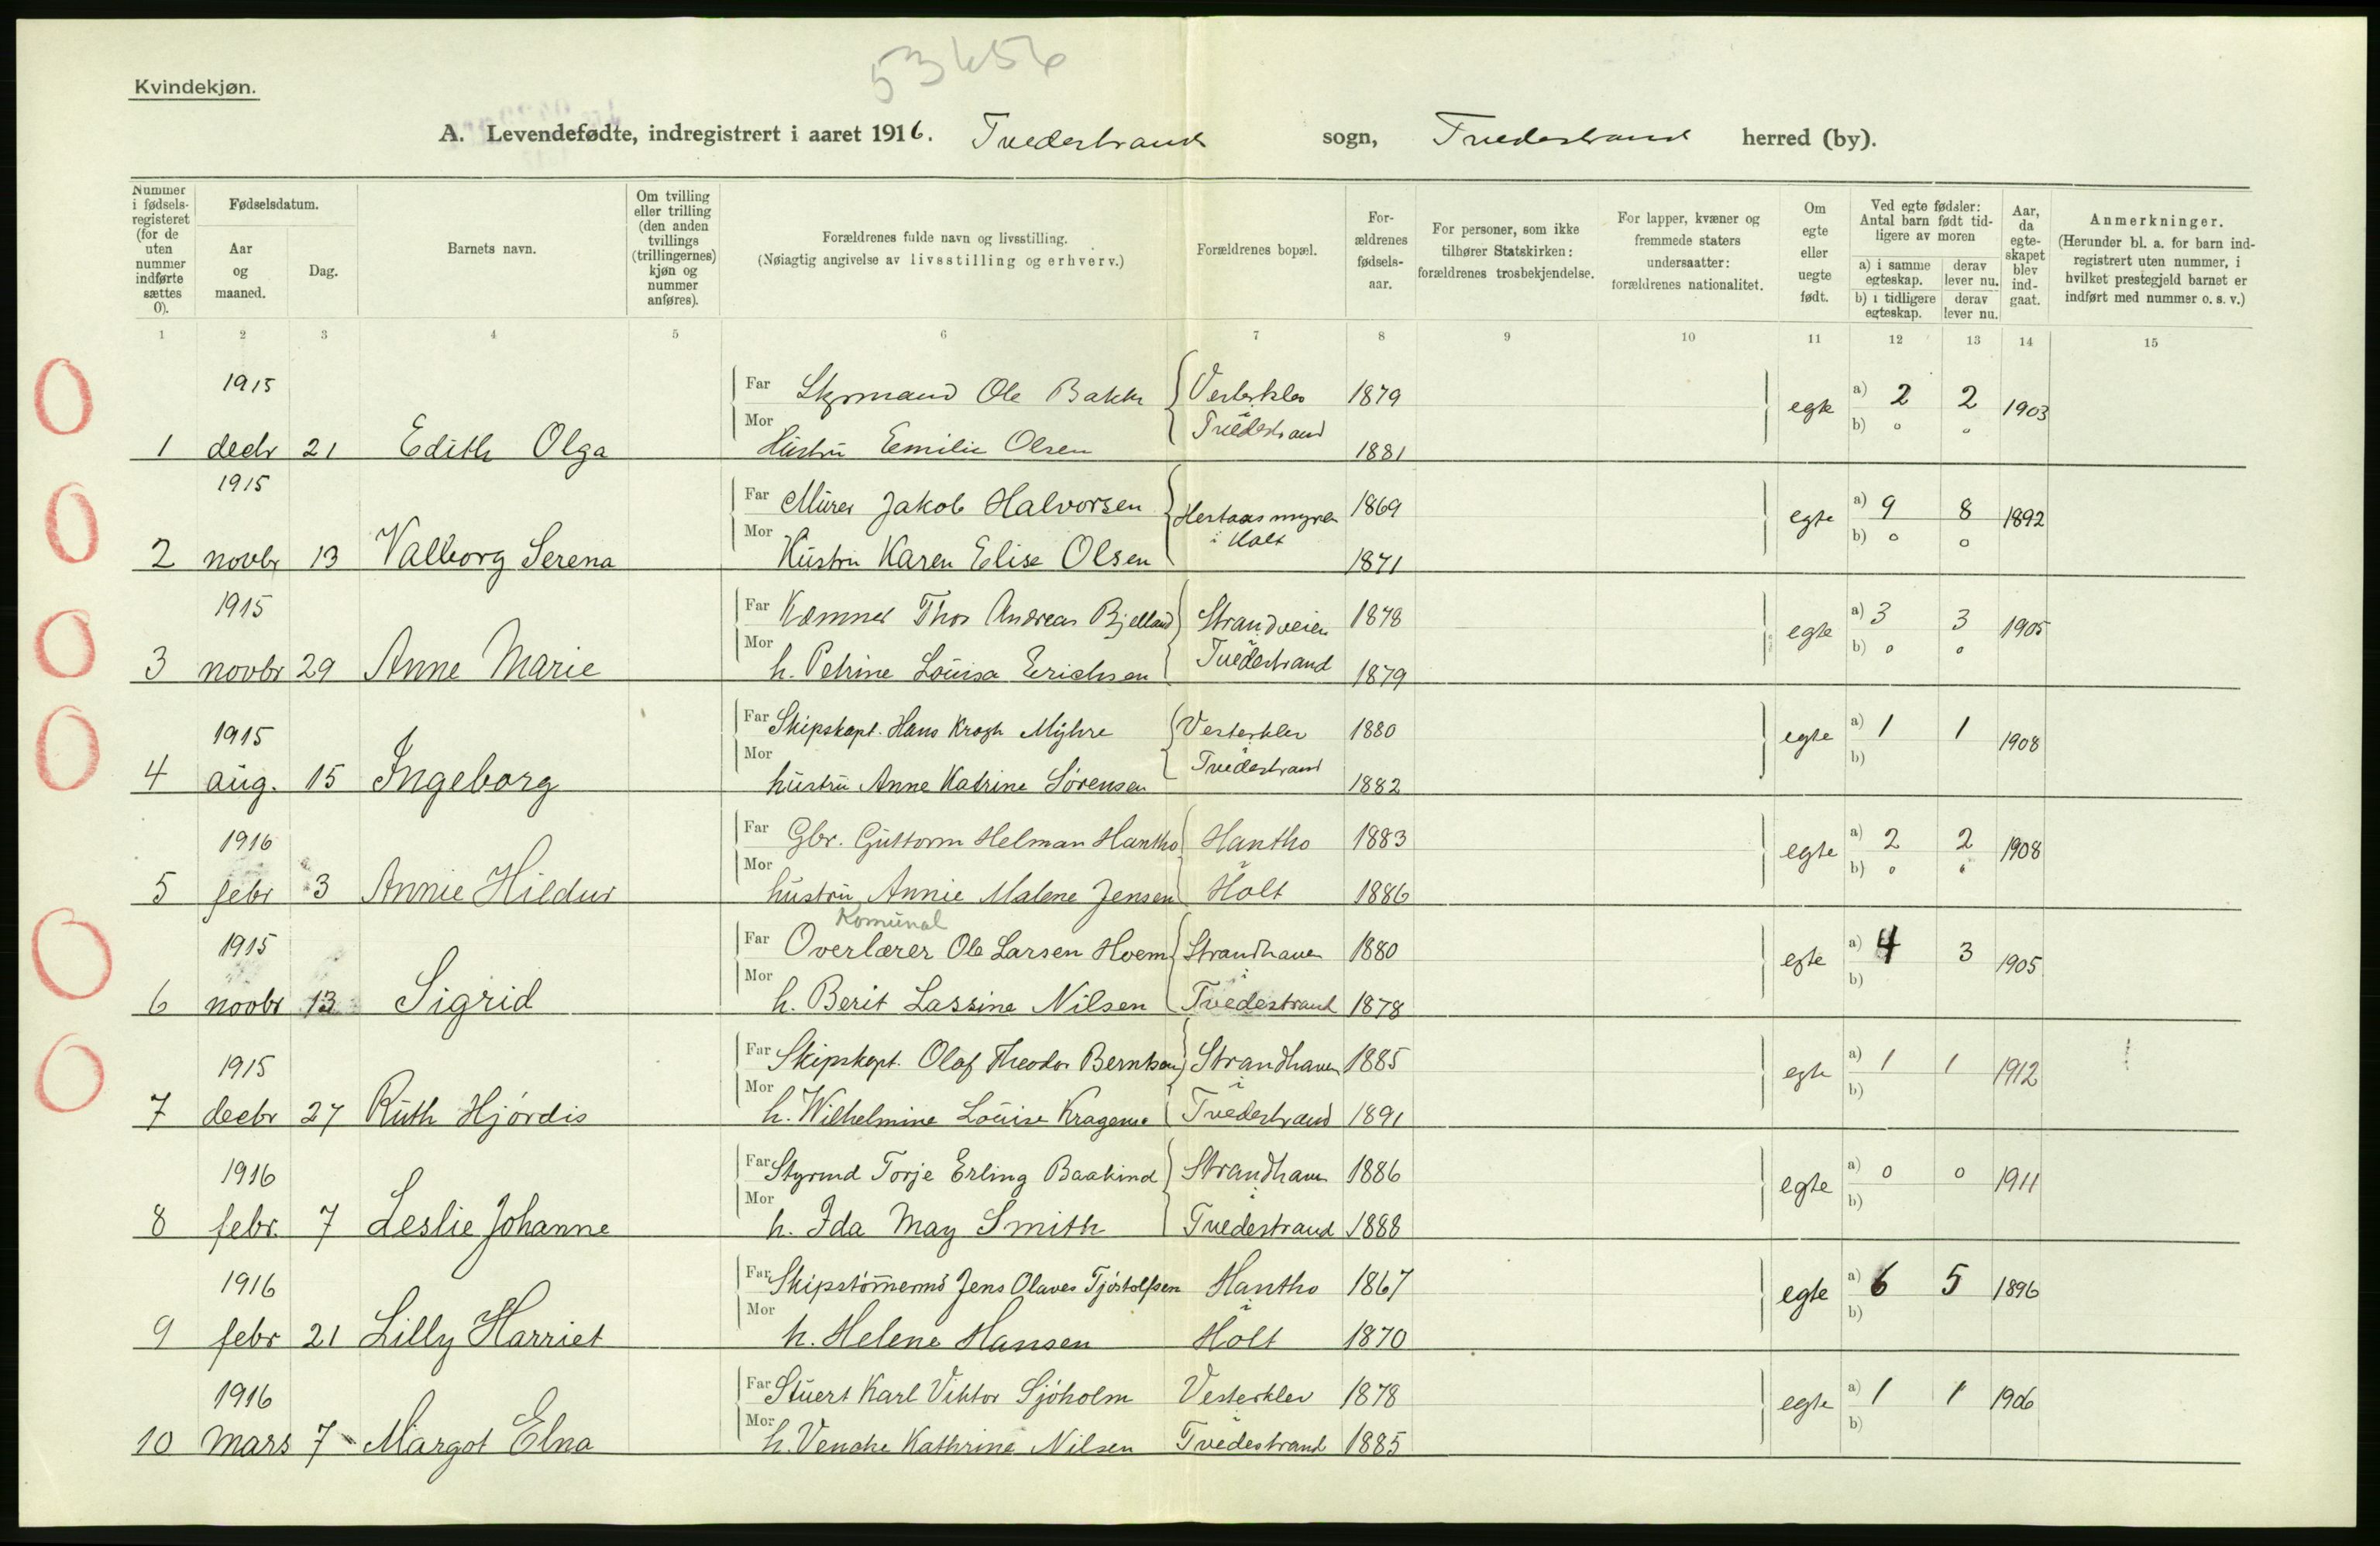 53656
Kvindekjøn.
A. Levendefødte, indregistrert i aaret 1916. Tvedestrand sogn, Tvedestrand herred (by).
Nummer i fødselsregisteret (for de uten nummer indførte sættes 0).
Fødselsdatum.
Aar og maaned.
Dag.
Barnets navn.
Om tvilling eller trilling (den anden tvillings (trillingernes) kjøn og nummer anføres).
Forældrenes fulde navn og livsstilling.
(Nøiagtig angivelse av livsstilling og erhverv.)
Forældrenes bopæl.
For-ældrenes fødsels-aar.
For personer, som ikke tilhører Statskirken: forældrenes trosbekjendelse.
For lapper, kvæner og fremmede staters undersaatter: forældrenes nationalitet.
Om egte eller uegte født.
Ved egte fødsler: Antal barn født tid-ligere av moren
a) i samme egteskap. derav lever nu.
b) i tidligere egteskap. derav lever nu.
Aar, da egte-skapet blev ind-gaat.
Anmerkninger.
(Herunder bl. a. for barn ind-registrert uten nummer, i hvilket prestegjeld barnet er indført med nummer o. s. v.)
1 2 3 4 5 6 7 8 9 10 11 12 13 14 15
1915 Far Styrmand Ole Bakke Vesterklev 1879 egte a) 2 2 1903
Mor i Tvedestrand b) 0 0
1 decbr 21 Edith Olga Hustru Emilie Olsen 1881
1915 Far Murer Jakob Halvorsen Hestaasmyren 1869 egte a) 9 8 1892
Mor i Holt b) 0 0
2 novbr 13 Valborg Serena Hustru Karen Elise Olsen 1871
1915 Far Kæmner Thor Andreas Bjelland Strandveien 1878 egte a) 3 3 1905
Mor Tvedestrand b) 0 0
3 novbr 29 Anne Marie h. Petrine Louisa Erichsen 1879
1915 Far Skipskapt. Hans Krogh Myhre Vesterklev 1880 egte a) 1 1 1908
Mor Tvedestrand b)
4 aug. 15 Ingeborg hustru Anne Katrine Sørensen 1882
1916 Far Gbr. Guttorm Helman Hantho Hantho 1883 egte a) 2 2 1908
Mor i b) 0 0
5 febr 3 Annie Hildur hustru Annie Malene Jensen Holt 1886
Komunal
1915 Far Overlærer Ole Larsen Hoem Strandhaven 1880 egte a) 4 3 1905
Mor i b)
6 novbr 13 Sigrid h. Berit Lassine Nilsen Tvedestrand 1878
1915 Far Skipskapt. Olaf Theodor Berntsen Strandhaven 1885 egte a) 1 1 1912
Mor i b)
7 decbr 27 Ruth Hjørdis h. Wilhelmine Louise Tvedestrand 1891
1916 Far Styrmd Torje Erling Baakind Strandhaven 1886 egte a) 0 0 1911
Mor i b)
8 febr. 7 Leslie Johanne h. Ida May Smith Tvedestrand 1888
1916 Far Skipstømermd Jens Olaves Tjøstolfsen Hantho 1867 egte a) 6 5 1896
Mor i b)
9 febr 21 Lilly Harriet h. Helene Hansen Holt 1870
1916 Far Stuert Karl Viktor Sjøholm Vesterklev 1878 egte a) 1 1 1906
Mor b)
10 mars 7 Margot Elna h. Venche Kathrine Nilsen Tvedestrand 1885